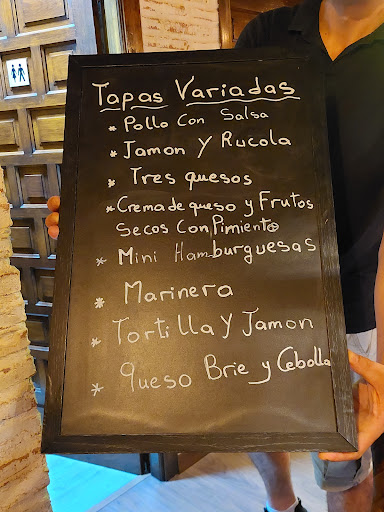 Tapas Variadas
* Pollo Con Salsa
* Jamon Y Rucola
* Tres quesos
* Crema de queso y Frutos
Secos Con Pimiento
* Mini Hamburguesas
* Marinera
* Tortilla Y Jamon
* queso Brie y Cebolla